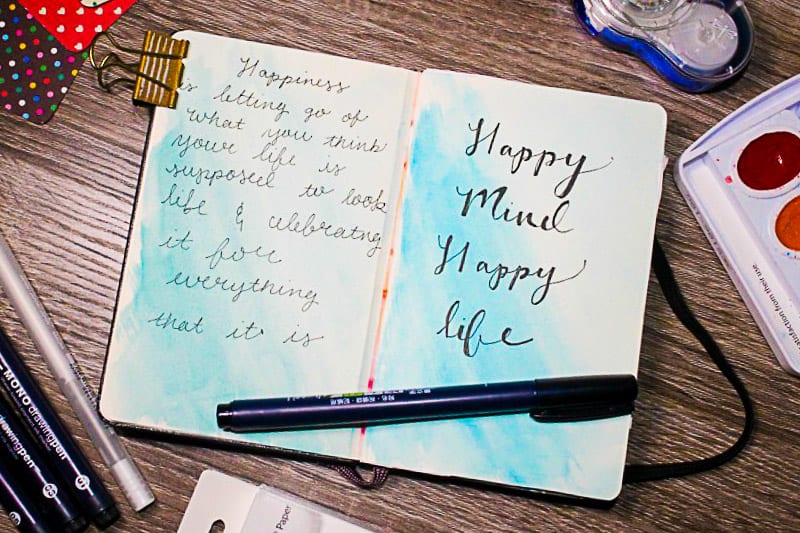 Happiness
is letting go of
what you think
your life is
supposed to look
like & celebratng
it for
everything
that it is
Happy
Mind
Happy
life
MONO drawingpen
drawingpen
satisfaction from their use.
Paper